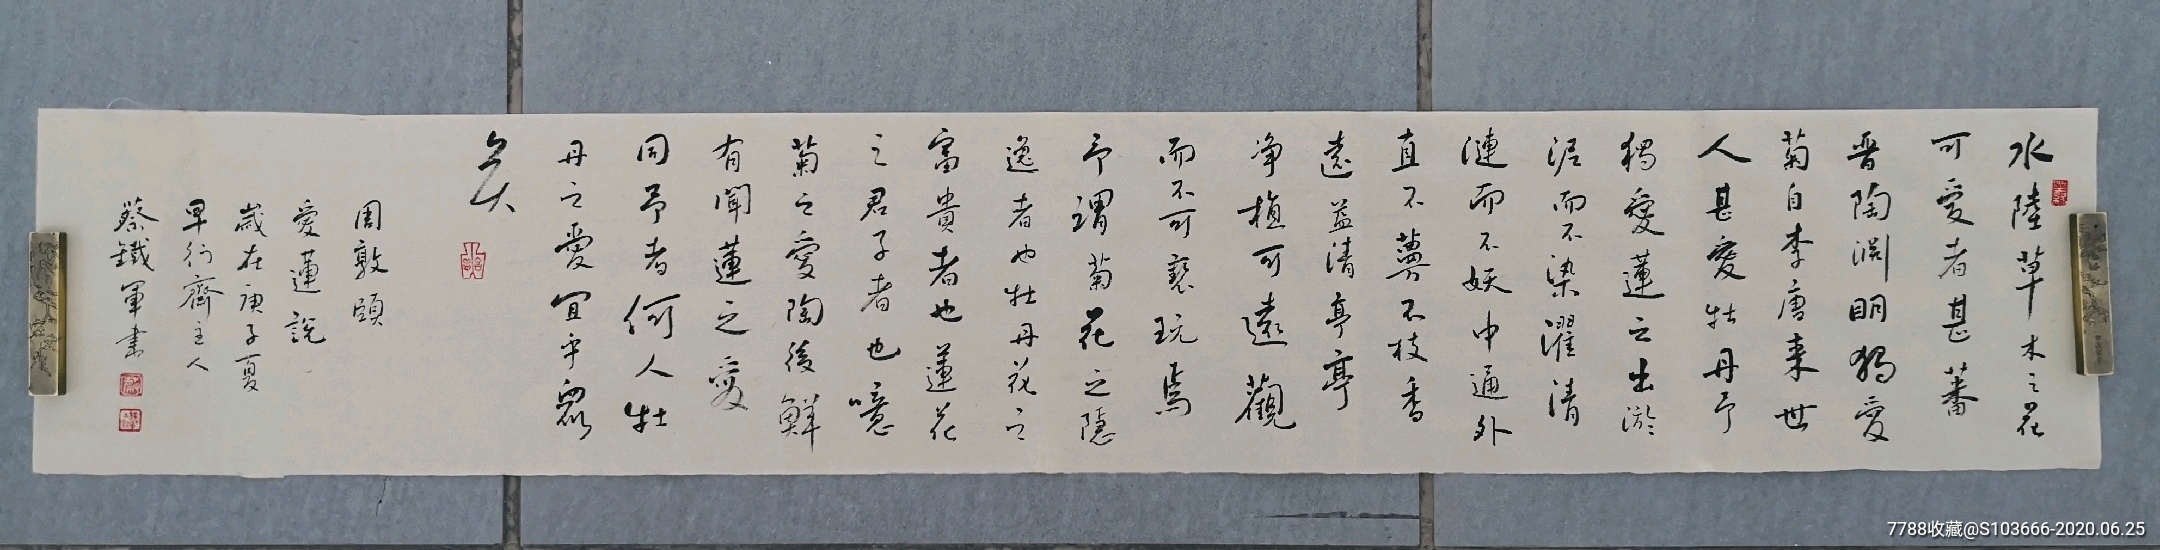 水陸草木之花
可愛者甚蕃
晋陶渊明獨愛
菊自李唐来世
人甚愛牡丹予
獨愛蓮之出淤
泥而不染濯清
漣而不妖中通外
直不蔓不枝香
遠益清亭亭
净植可遠觀
而不可褻玩焉
予謂菊花之隱
逸者也牡丹花之
富貴者也蓮花
之君子者也噫
菊之愛陶後鮮
有聞蓮之愛
同予者何人牡
丹之愛宜乎衆
矣
周敦頤
愛蓮説
歲在庚子夏
早行齋主人
蔡鐵軍書
7788收藏@S103666-2020.06.25